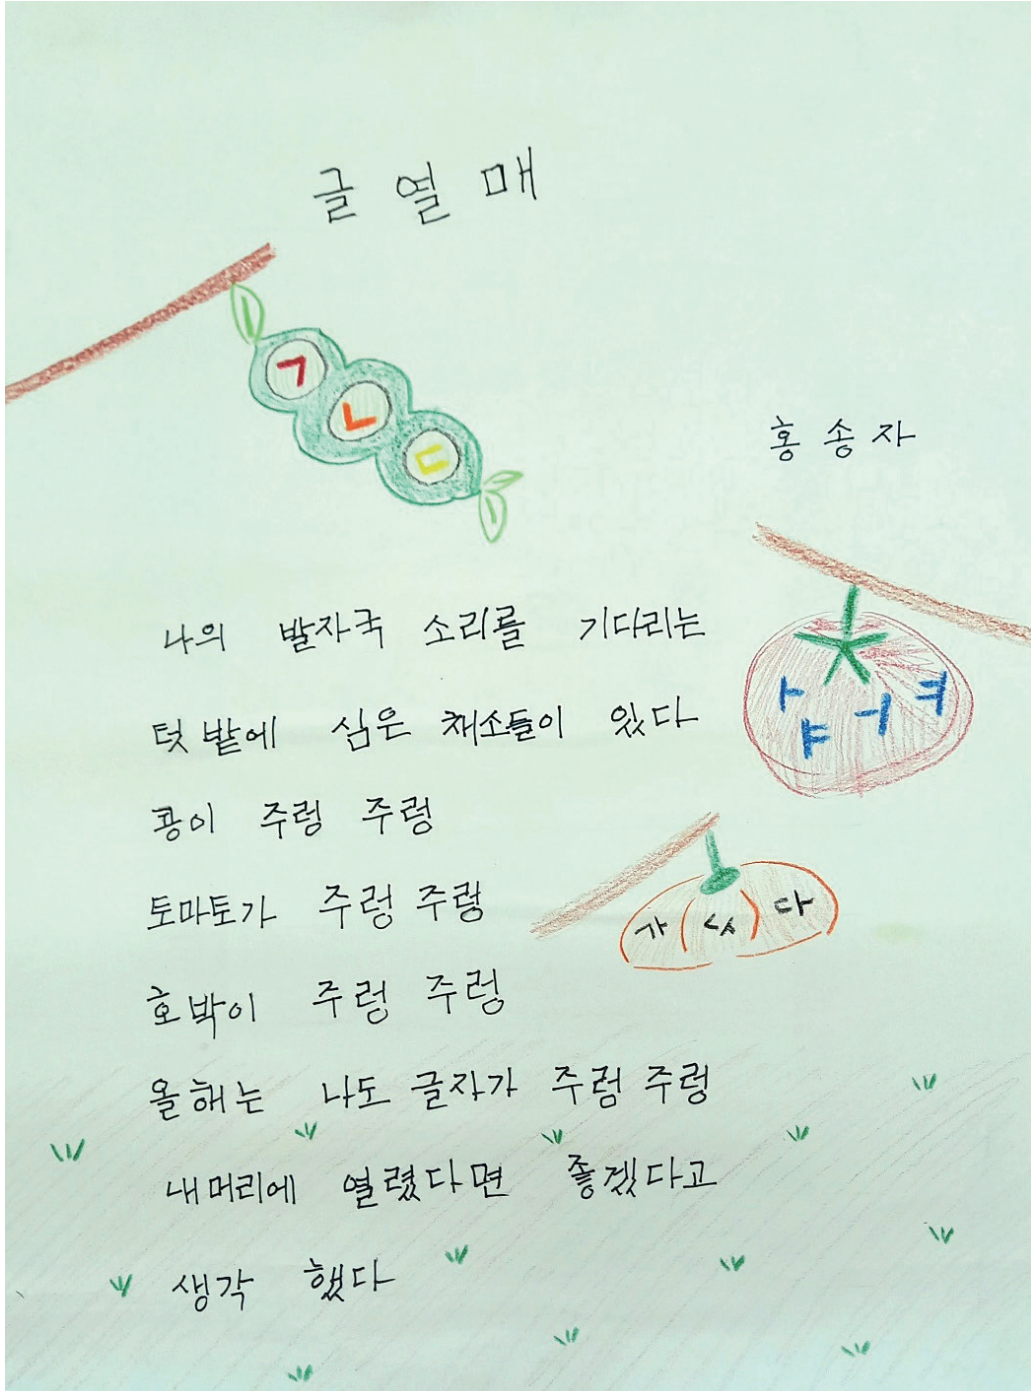 글 열 매
ㄱ
ㄴ
ㄷ
홍 송 자
나의 발자국 소리를 기다리는
텃밭에 심은 채소들이 있다
ㅏ ㅑ ㅓ ㅕ
콩이 주렁 주렁
토마토가 주렁 주렁
가 다
호박이 주렁 주렁
올해는 나도 글자가 주렁 주렁
내머리에 열렸다면 좋겠다고
생각 했다